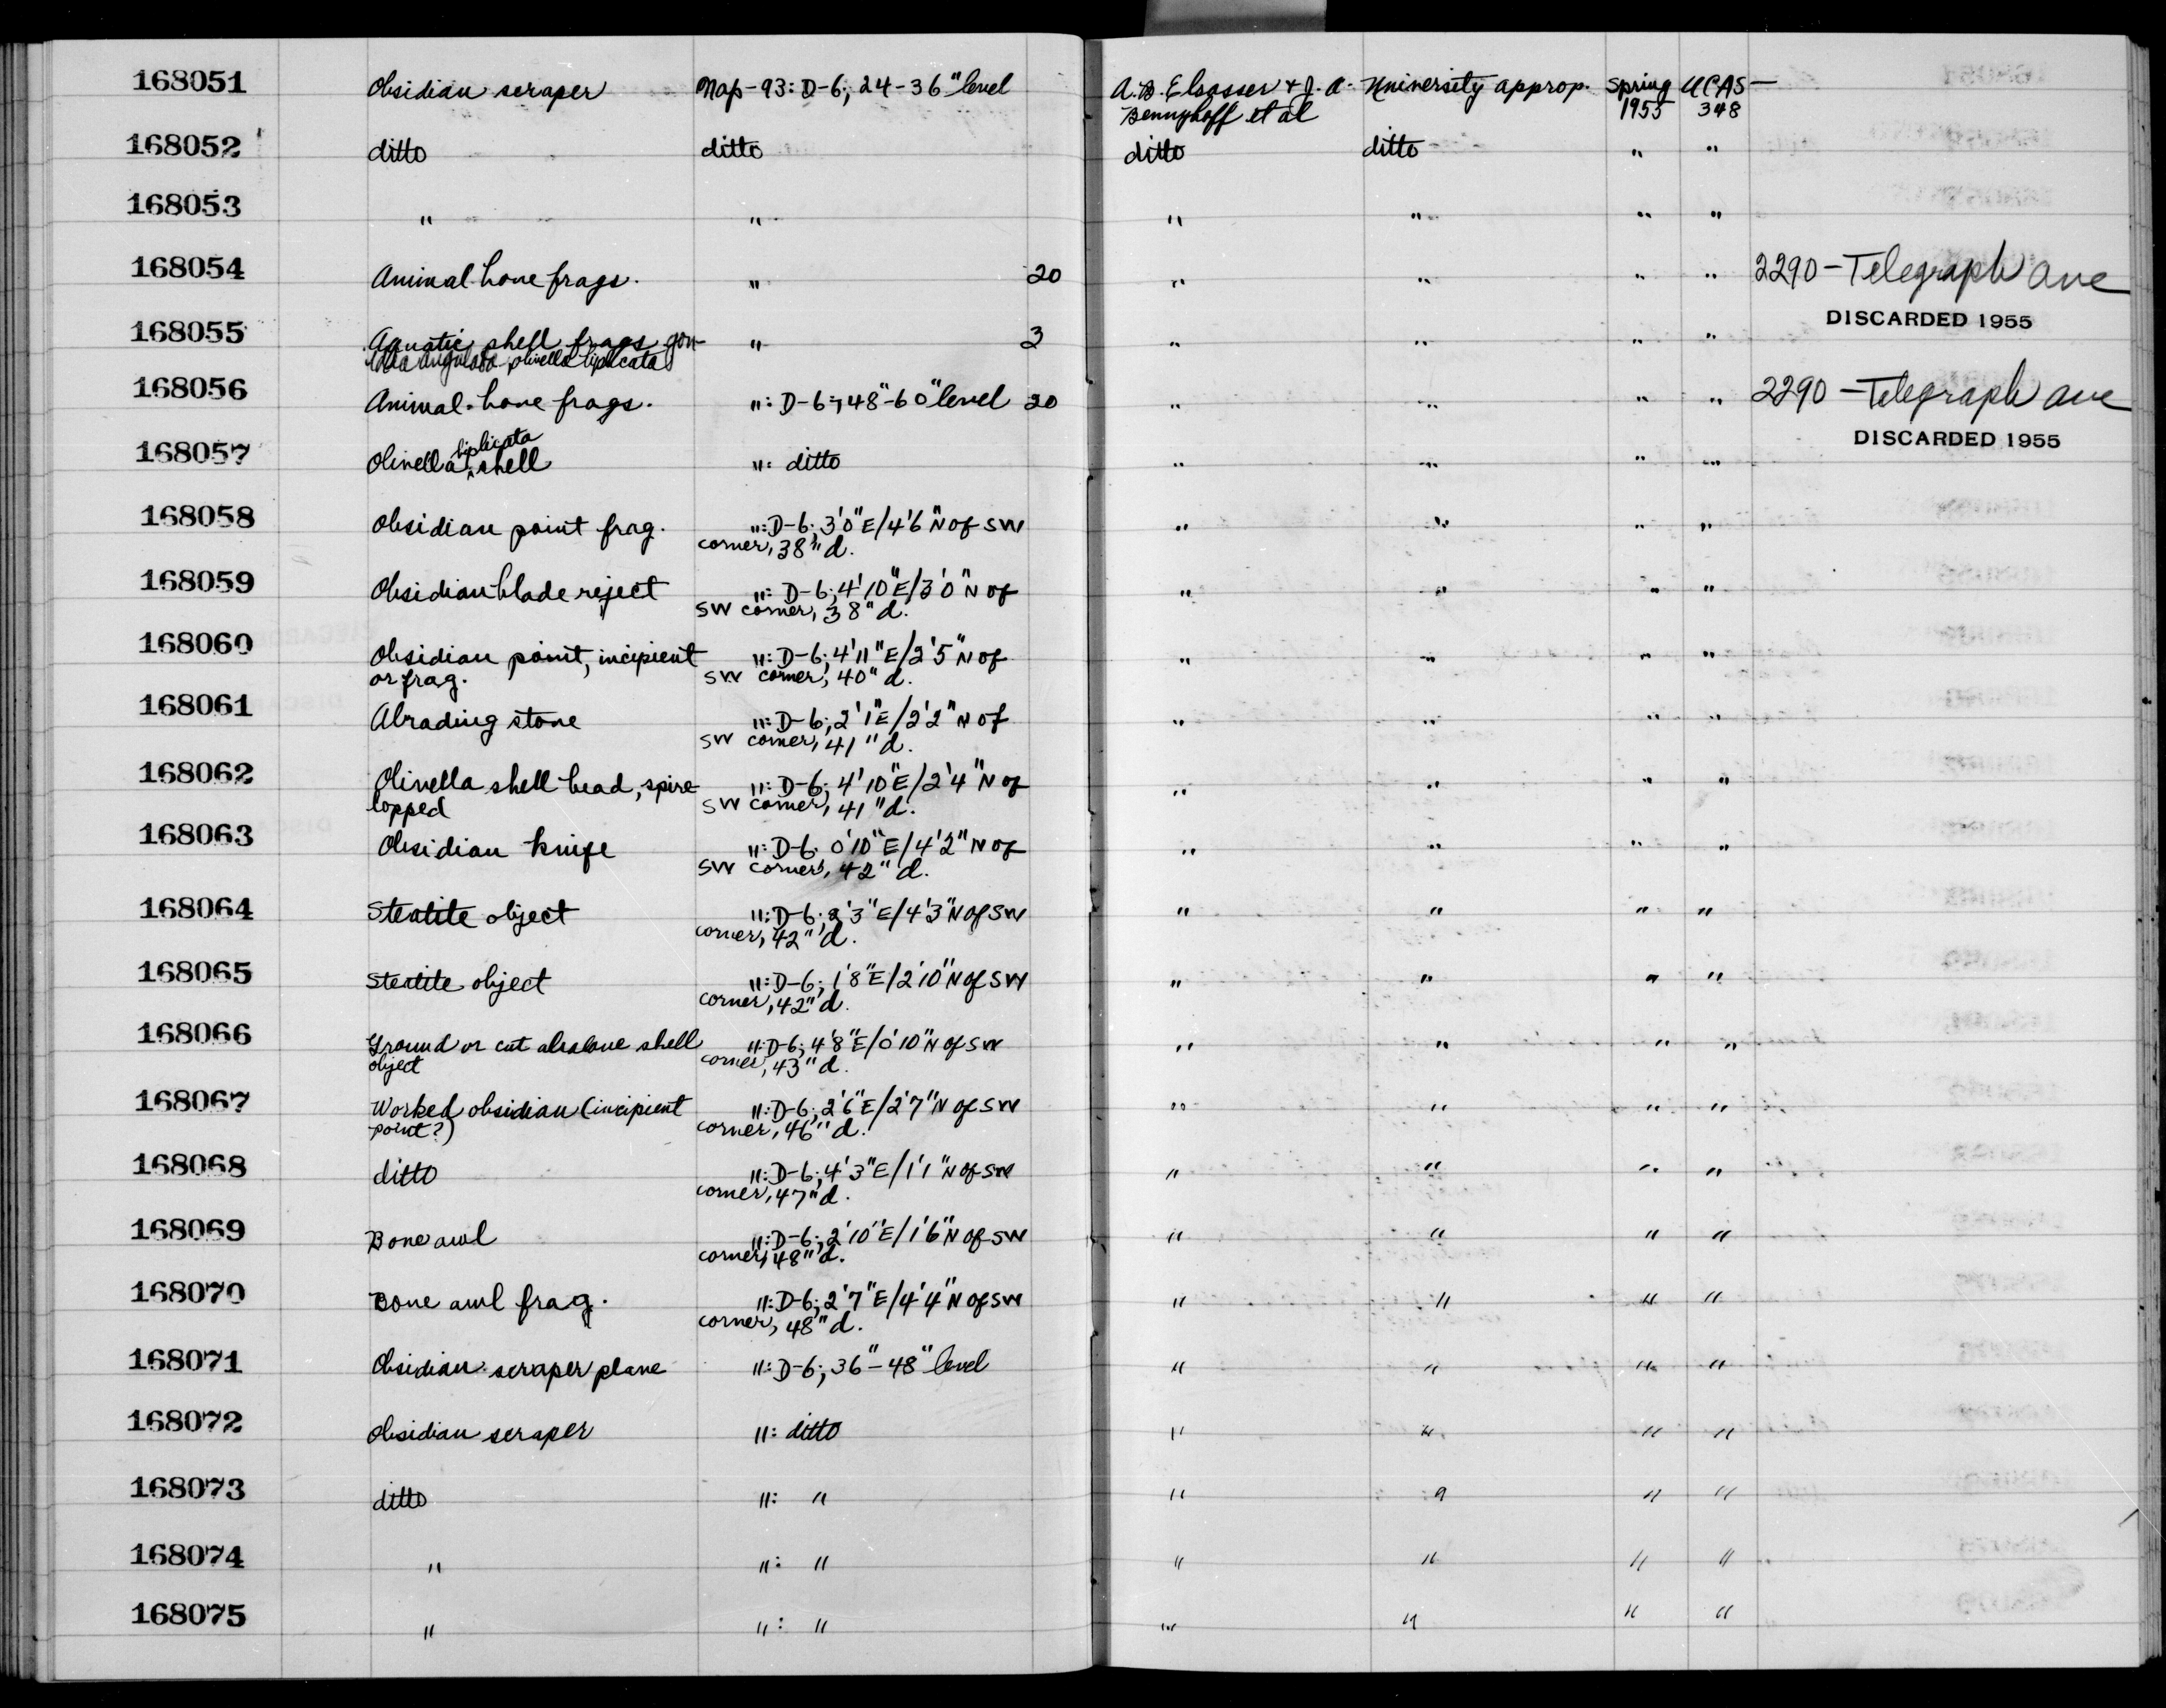 168051 Obsidian scraper Nap-93: D-6; 24-36" level A.B. Elsasser & J.A. University approp. Spring UCAS-
Bennyhoff et al 1955 348
168052 ditto ditto ditto ditto " "
168053 " " " " " "
168054 Animal bone frags. " 20 " " " " 2290-Telegraph Ave
DISCARDED 1955
168055 Aquatic shell frags gon- " 3 " " " "
idea angulata olivella biplicata
168056 Animal bone frags. ": D-6; 48"-60" level 20 " " " " 2290-Telegraph Ave
DISCARDED 1955
biplicata
168057 Olivella ^ shell ": ditto " " " "
168058 Obsidian point frag. ": D-6; 3'0"E/4'6"N of SW " " " "
corner, 38" d.
168059 Obsidian blade reject ": D-6; 4'10"E/3'0"N of " " " "
SW corner, 38" d.
168060 Obsidian point, incipient ": D-6; 4'11"E/2'5"N of " " " "
or frag. SW corner, 40" d.
168061 Abrading stone ": D-6; 2'1"E/2'2"N of " " " "
SW corner, 41" d.
168062 Olivella shell bead, spire- ": D-6; 4'10"E/2'4"N of " " " "
lopped SW corner, 41" d.
168063 Obsidian knife ": D-6. 0'10"E/4'2"N of " " " "
SW corner, 42" d.
168064 Steatite object ": D-6; 2'3"E/4'3"N of SW " " " "
corner, 42" d.
168065 Steatite object ": D-6; 1'8"E/2'10"N of SW " " " "
corner, 42" d.
168066 Ground or cut abalone shell ": D-6; 4'8"E/0'10"N of SW " " " "
object corner, 43" d.
168067 Worked obsidian (incipient ": D-6; 2'6"E/2'7"N of SW " " " "
point?) corner, 46" d.
168068 ditto ": D-6; 4'3"E/1'1"N of SW " " " "
corner, 47" d.
168069 Bone awl ": D-6; 2'10"E/1'6"N of SW " " " "
corner, 48" d.
168070 Bone awl frag. ": D-6; 2'7"E/4'4"N of SW " " " "
corner, 48" d.
168071 Obsidian scraper plane ": D-6; 36"-48" level " " " "
168072 Obsidian scraper ": ditto " " " "
168073 ditto ": " " " " "
168074 " ": " " " " "
168075 " ": " " " " "